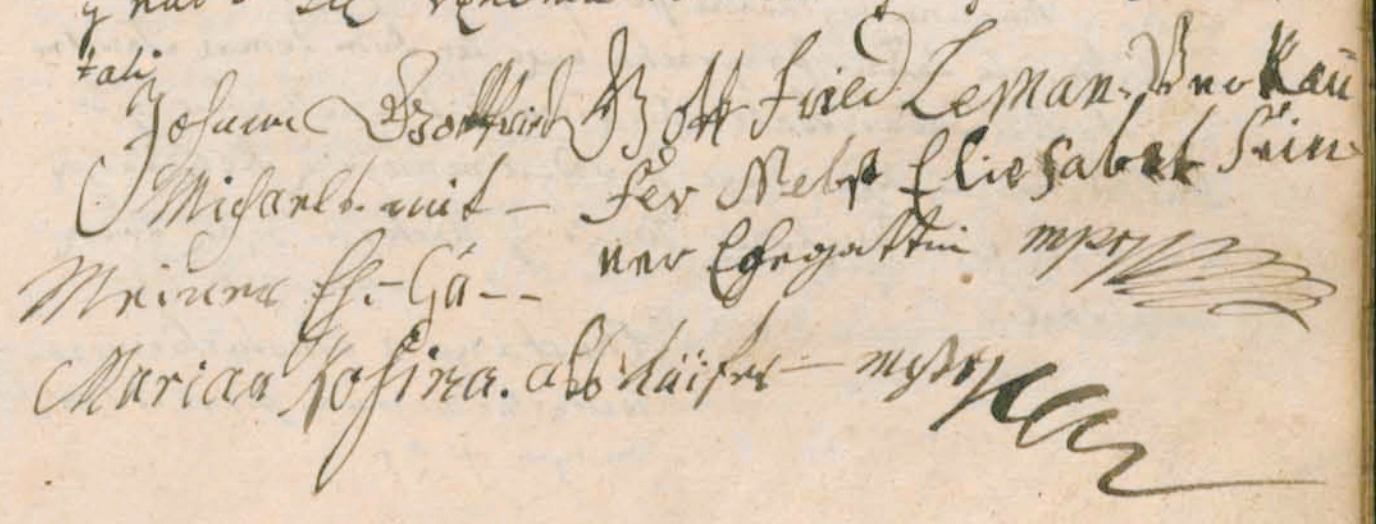 tali
Johann Gottfried
Michaelb. mit –
Meiner Eh- Gä--
Marian Rosina. alß Käifer – mpr
Gottfried Leman. Ver Käu
fer Nebst Eliesabet Sein
ner Ehegattin mpr